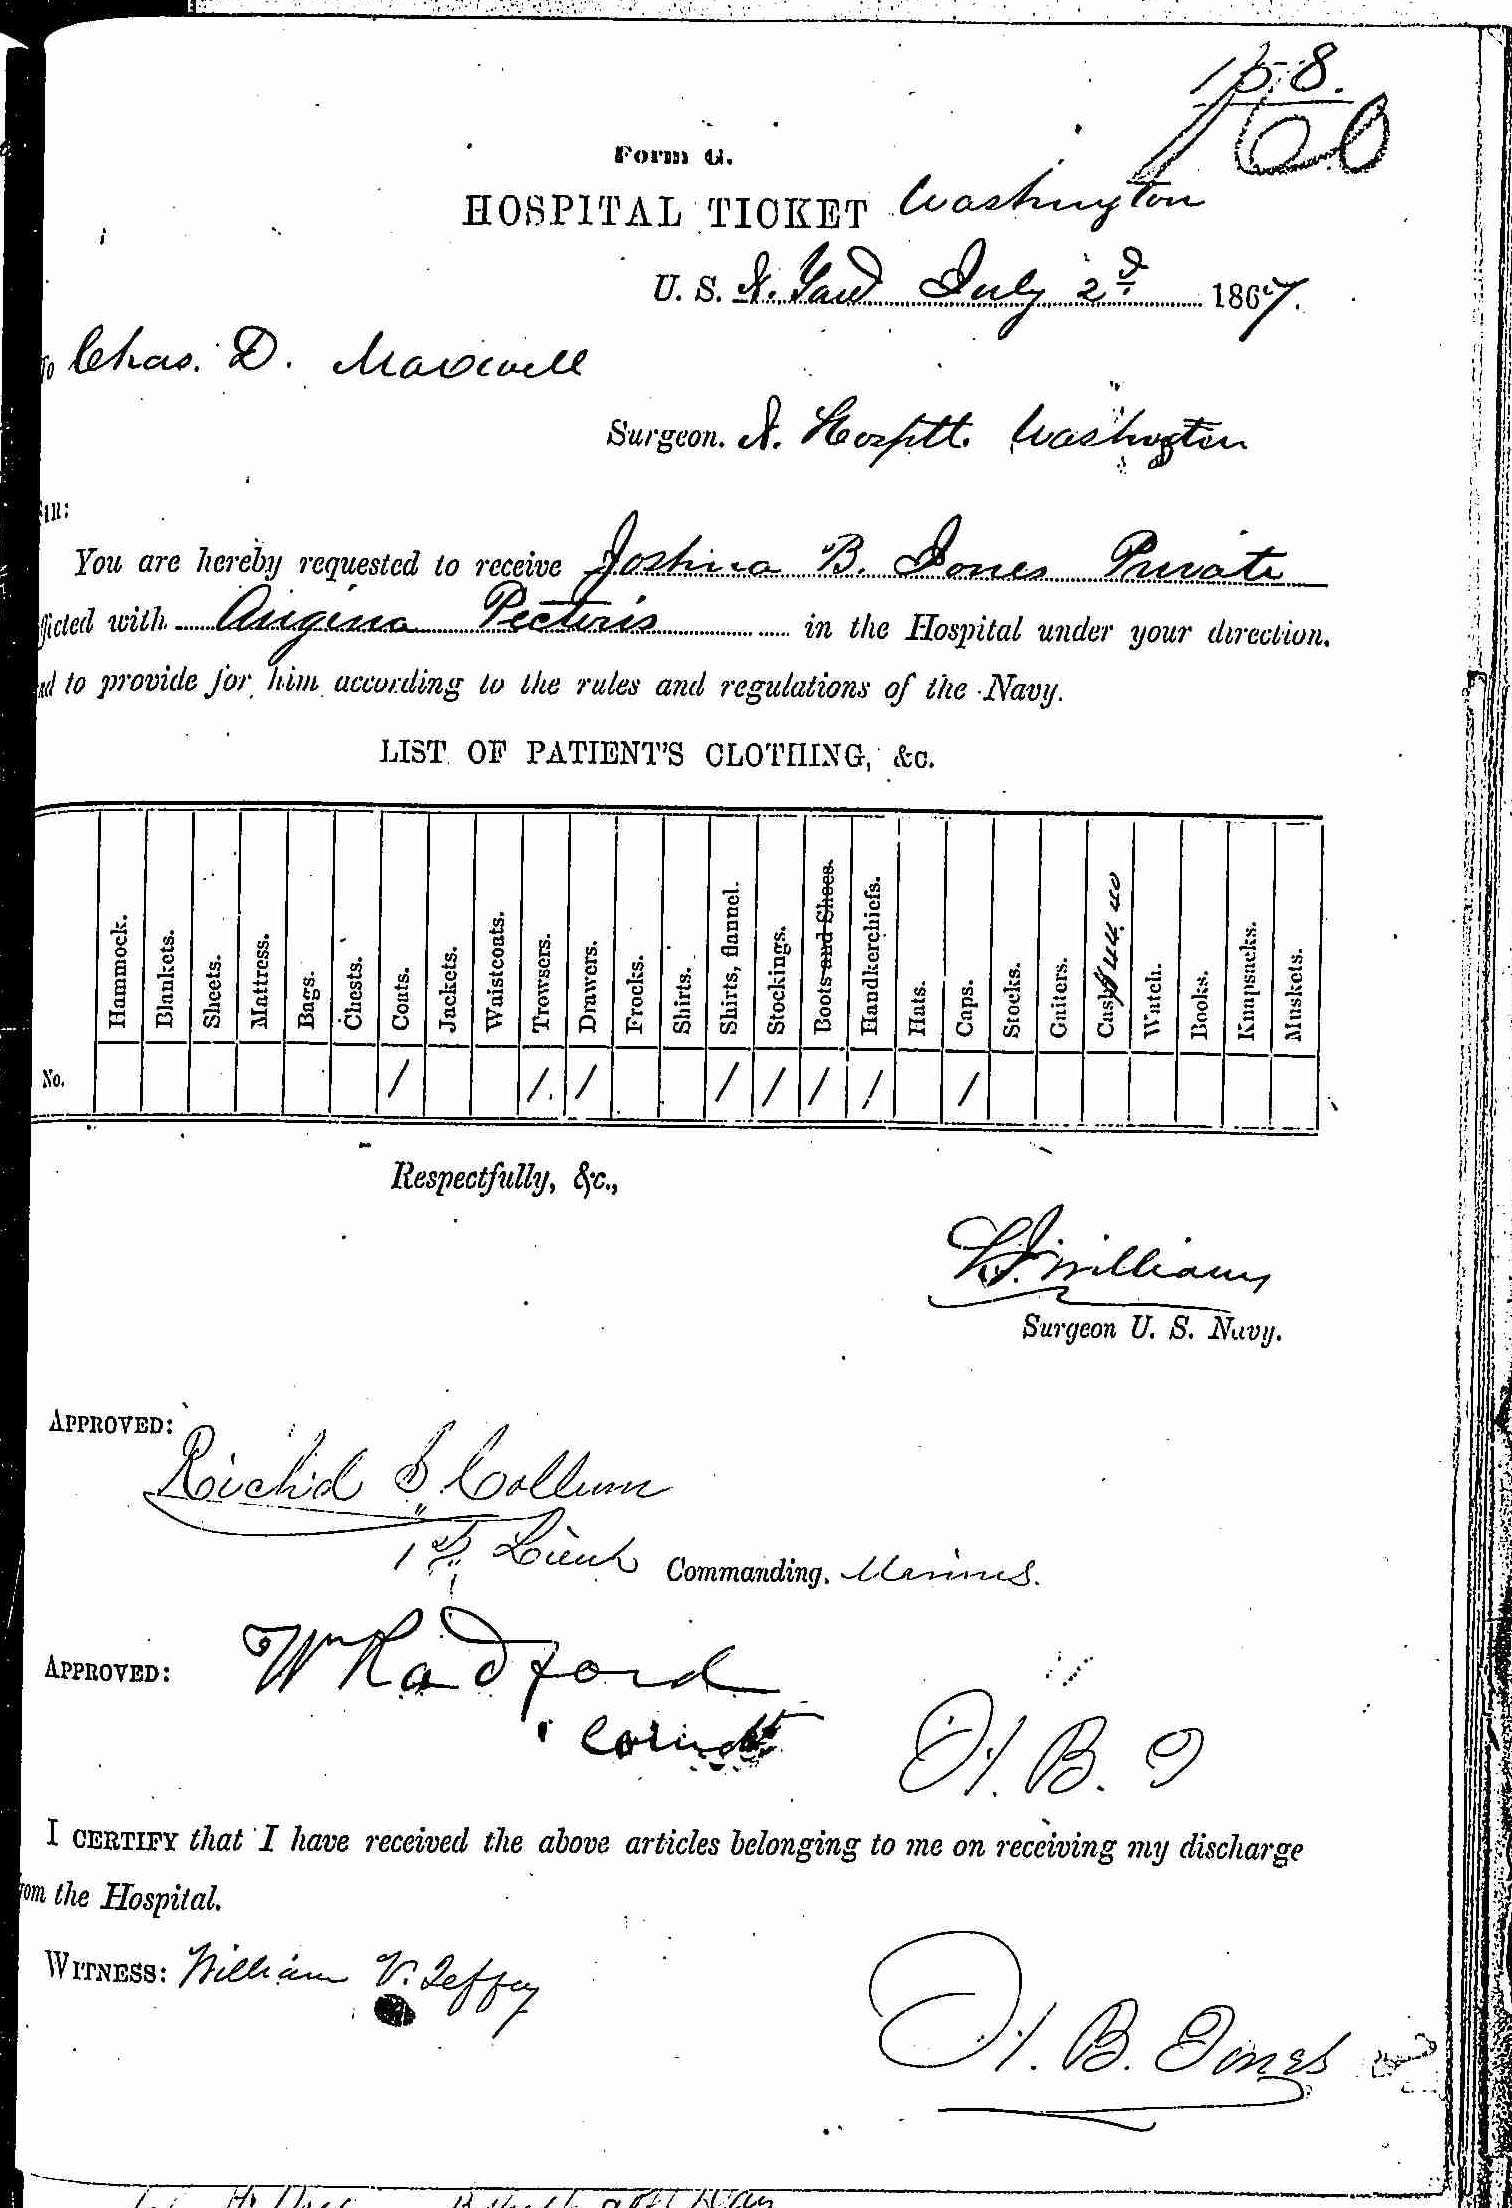 158.
Form G.
HOSPITAL TICKET Washington
U. S. N. Yard July 2d 1867.
To Chas. D. Maxwell
Surgeon. N. Hospitl. Washington
Sir:
You are hereby requested to receive Joshua B. Jones Private
fficted with Angina Pectoris in the Hospital under your direction.
nd to provide for him according to the rules and regulations of the Navy.
LIST OF PATIENT'S CLOTHING, &c.
Hammock. Blankets. Sheets. Mattress. Bags. Chests. Coats. Jackets. Waistcoats. Trowsers. Drawers. Frocks. Shirts. Shirts, flannel. Stockings. Boots and Shoes. Handkerchiefs. Hats. Caps. Stocks. Gaiters. Cash Watch. Books. Knapsacks. Muskets.
No. / /. / / / / / /
Respectfully, &c.,
Williams
Surgeon U. S. Navy.
APPROVED:
Rich'd S. Collum
1st Lieut Commanding. Marines.
APPROVED: Wm Radford
Comdt
H. B. J
I CERTIFY that I have received the above articles belonging to me on receiving my discharge
rom the Hospital.
WITNESS: William V. Jeffey
H. B. Jones